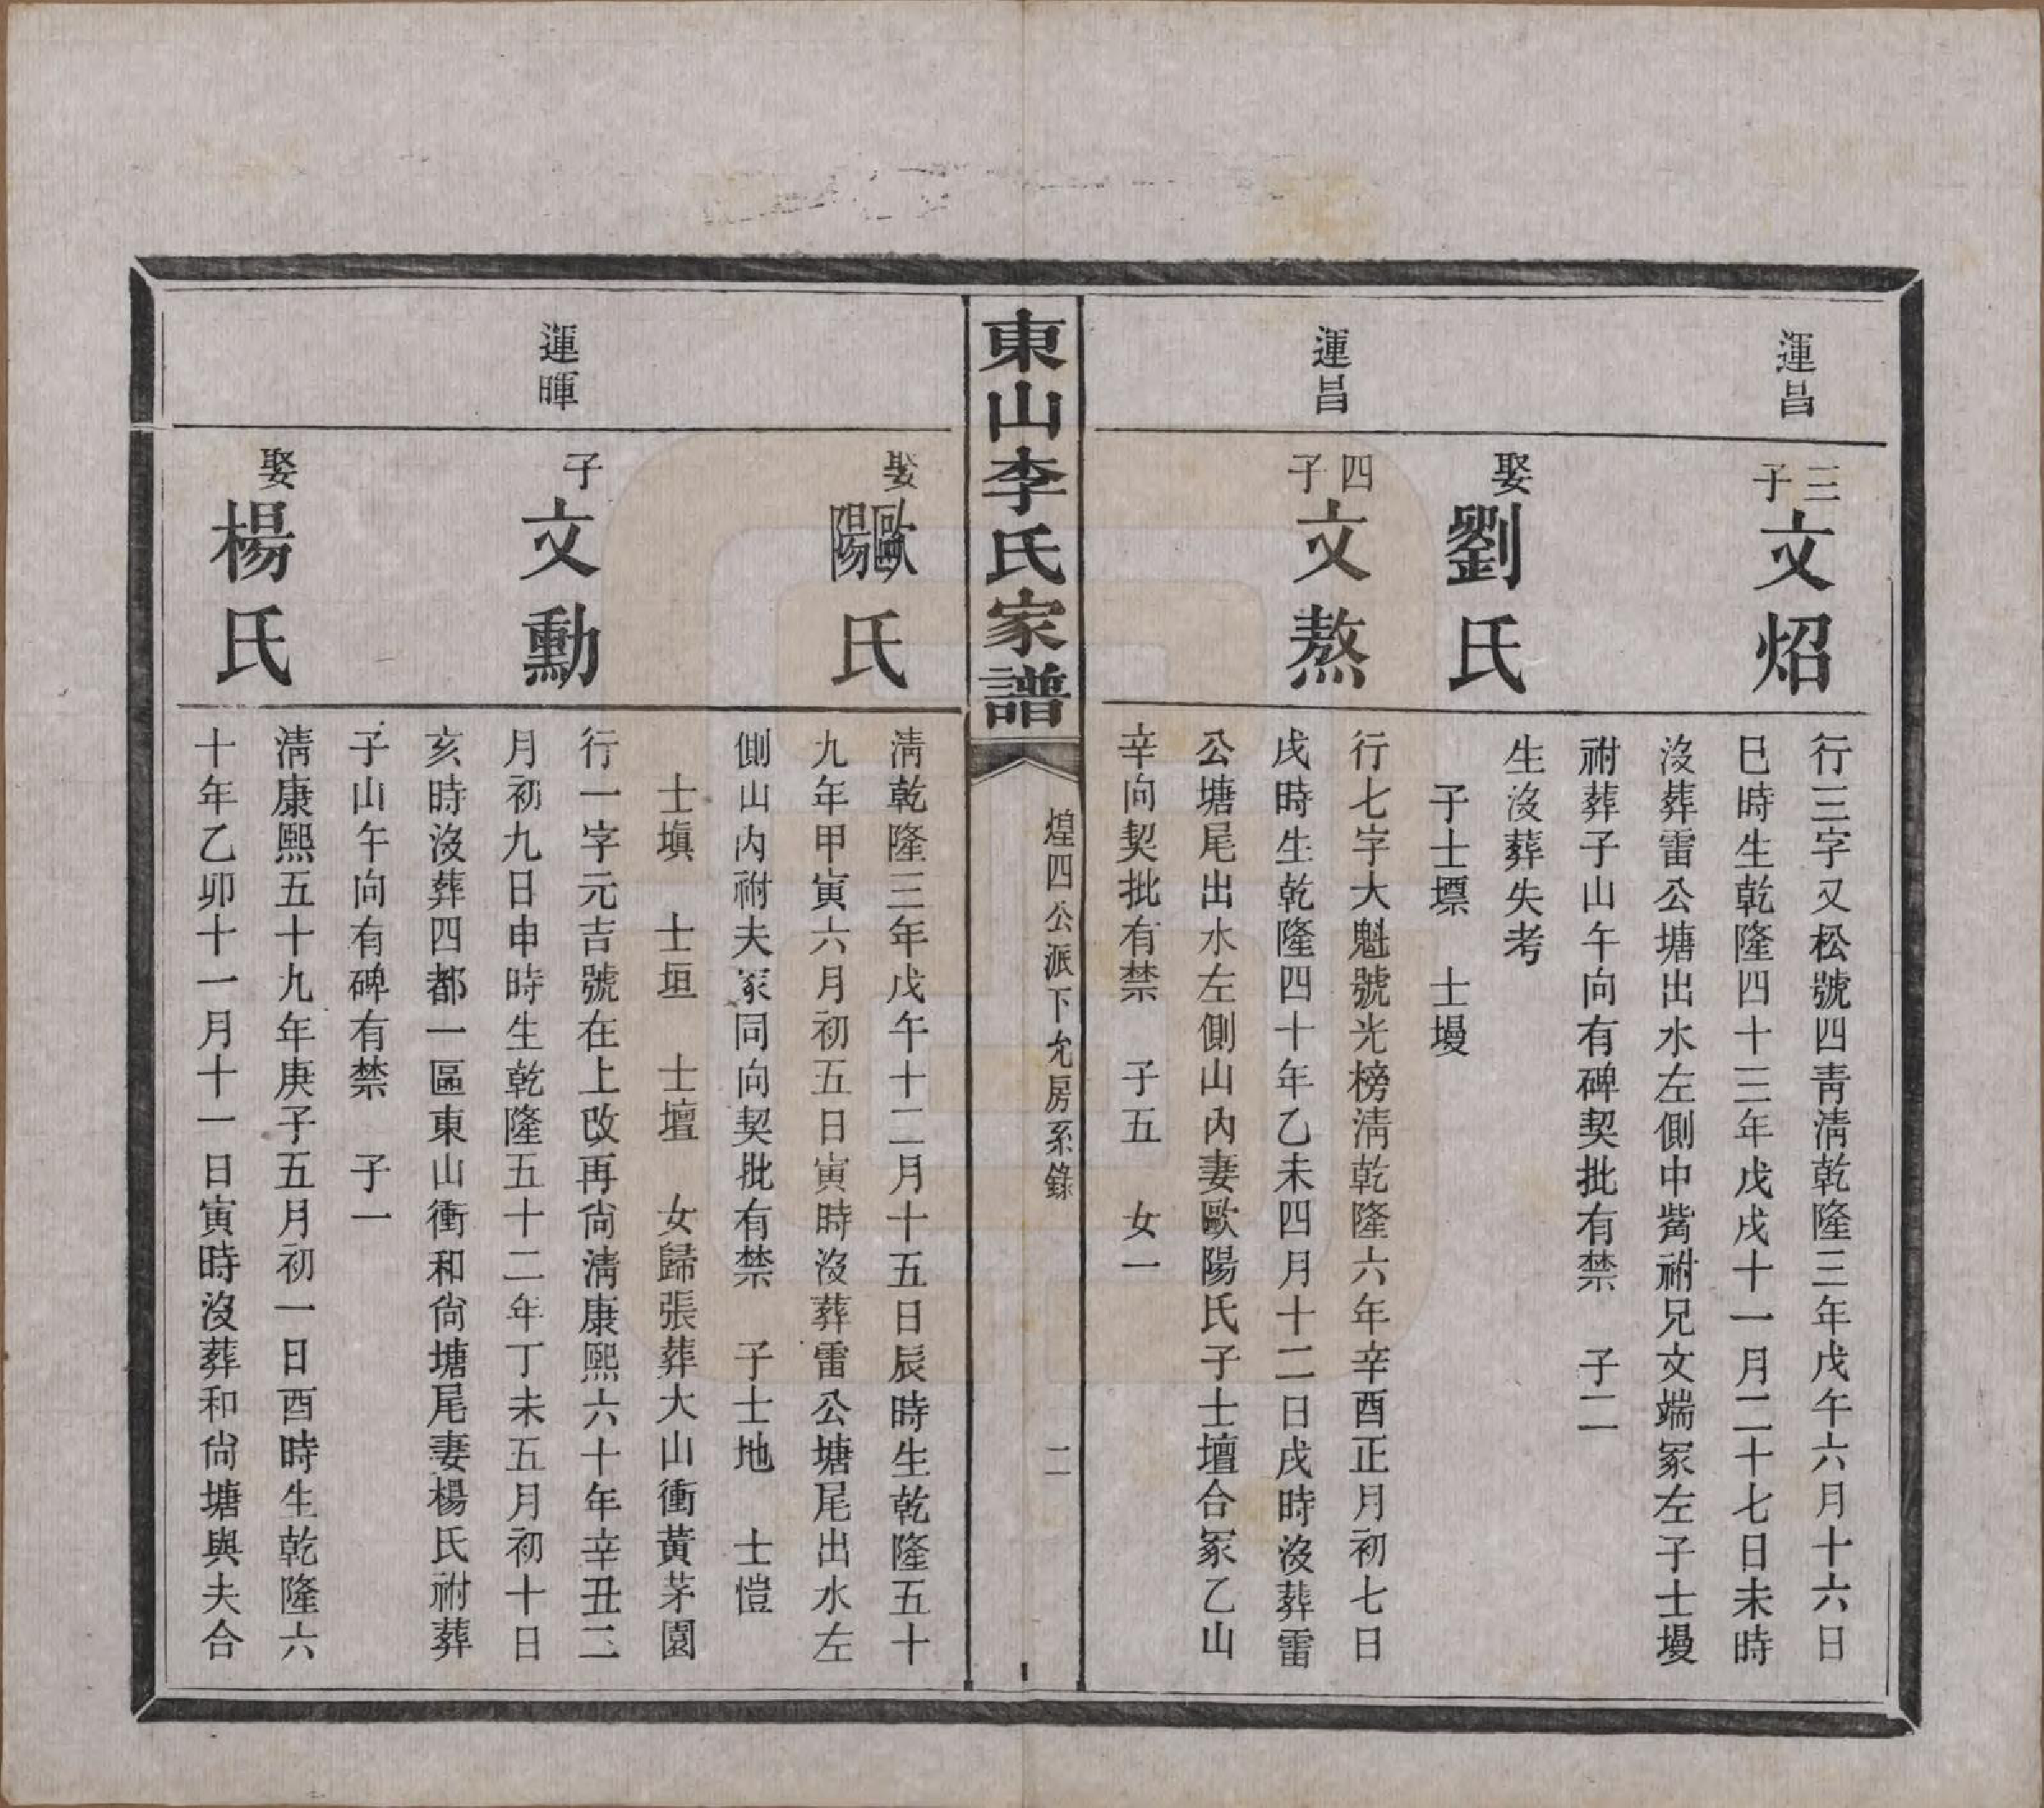 運昌
三子
文炤
行三字又松號四靑淸乾隆三年戊午六月十六日
巳時生乾隆四十三年戊戌十一月二十七日未時
沒葬雷公塘出水左側中嘴祔兄文端冢左子士墁
祔葬子山午向有碑契批有禁　子二
娶
劉氏
生沒葬失考
子士墂　士墁
運昌
四子
文熬
行七字大魁號光榜淸乾隆六年辛酉正月初七日
戌時生乾隆四十年乙未四月十二日戌時沒葬雷
公塘尾出水左側山內妻歐陽氏子士壇合冢乙山
辛向契批有禁　子五　女一
東山李氏家譜
煌四公派下允房系錄
二
娶
歐陽氏
淸乾隆三年戊午十二月十五日辰時生乾隆五十
九年甲寅六月初五日寅時沒葬雷公塘尾出水左
側山內祔夫冢同向契批有禁　子士地　士愷
士塡　士垣　士壇　女歸張葬大山衝黃茅園
運暉
子
文勳
行一字元吉號在上改再尙淸康熙六十年辛丑二
月初九日申時生乾隆五十二年丁未五月初十日
亥時沒葬四都一區東山衝和尙塘尾妻楊氏祔葬
子山午向有碑有禁　子一
娶
楊氏
淸康熙五十九年庚子五月初一日酉時生乾隆六
十年乙卯十一月十一日寅時沒葬和尙塘與夫合